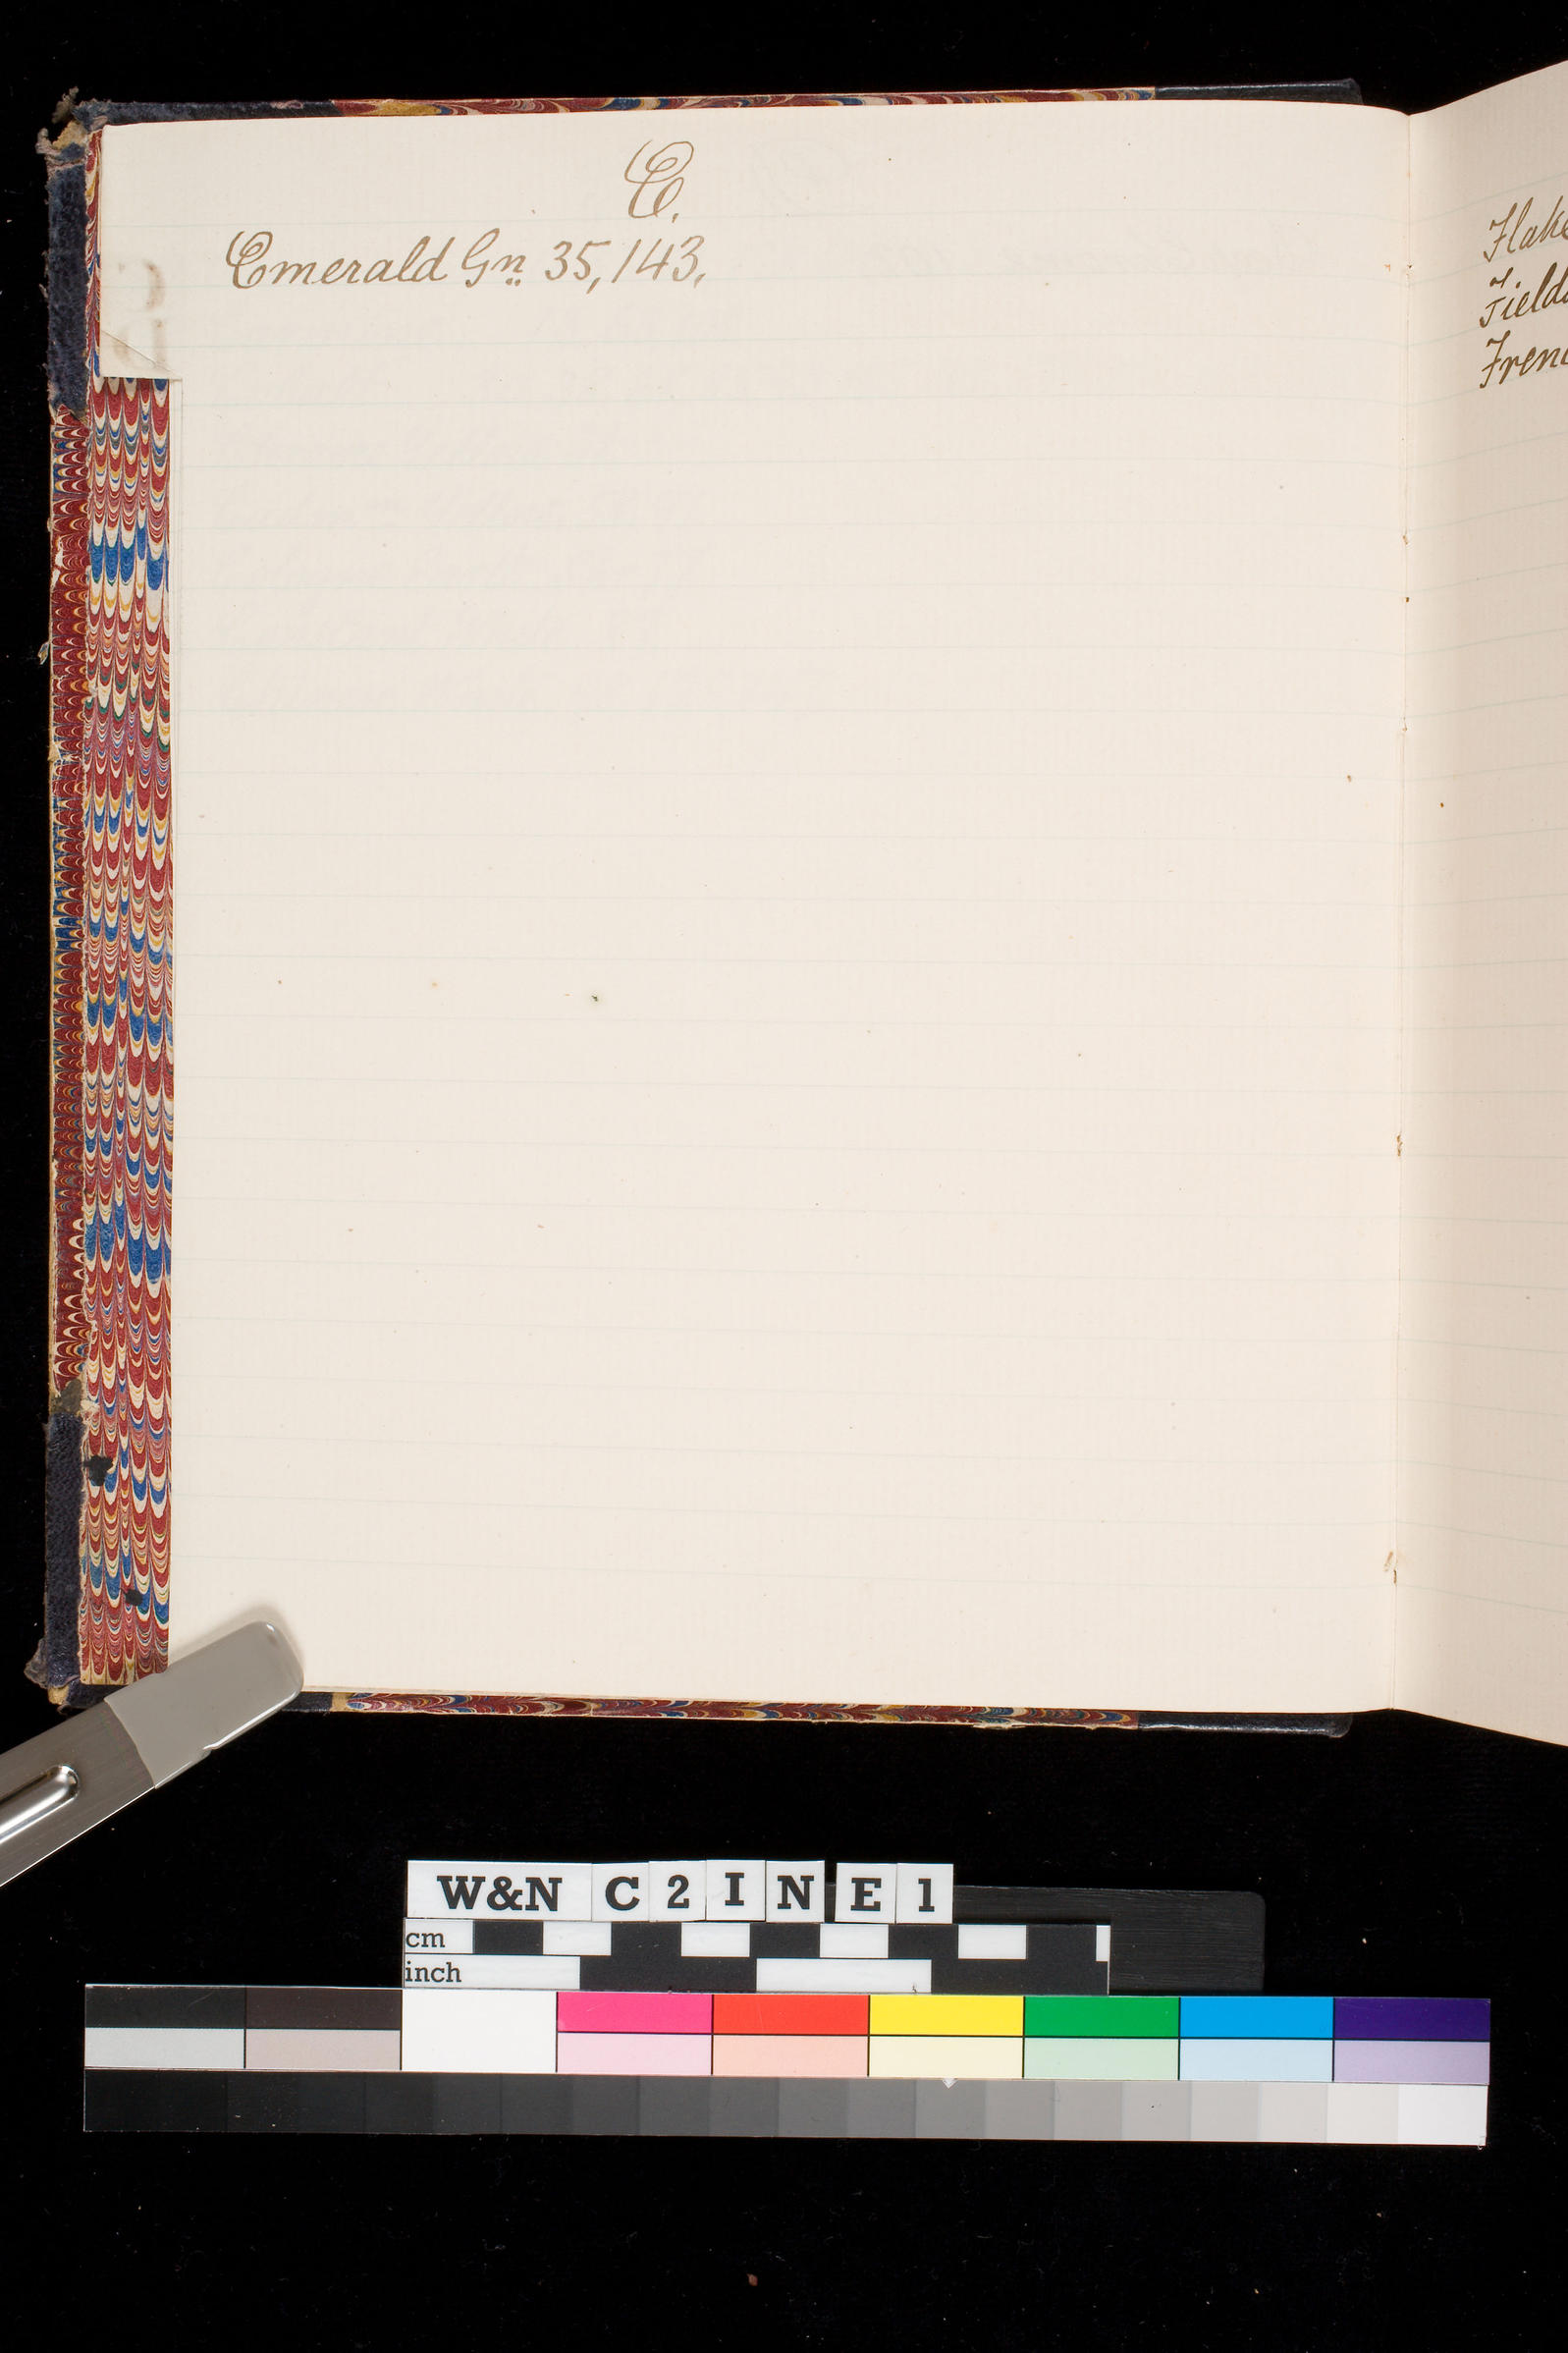 E.
Emerald Gn. 35, 143.
Flake
Field
Frenc
W&N C 2 I N E 1
cm
inch